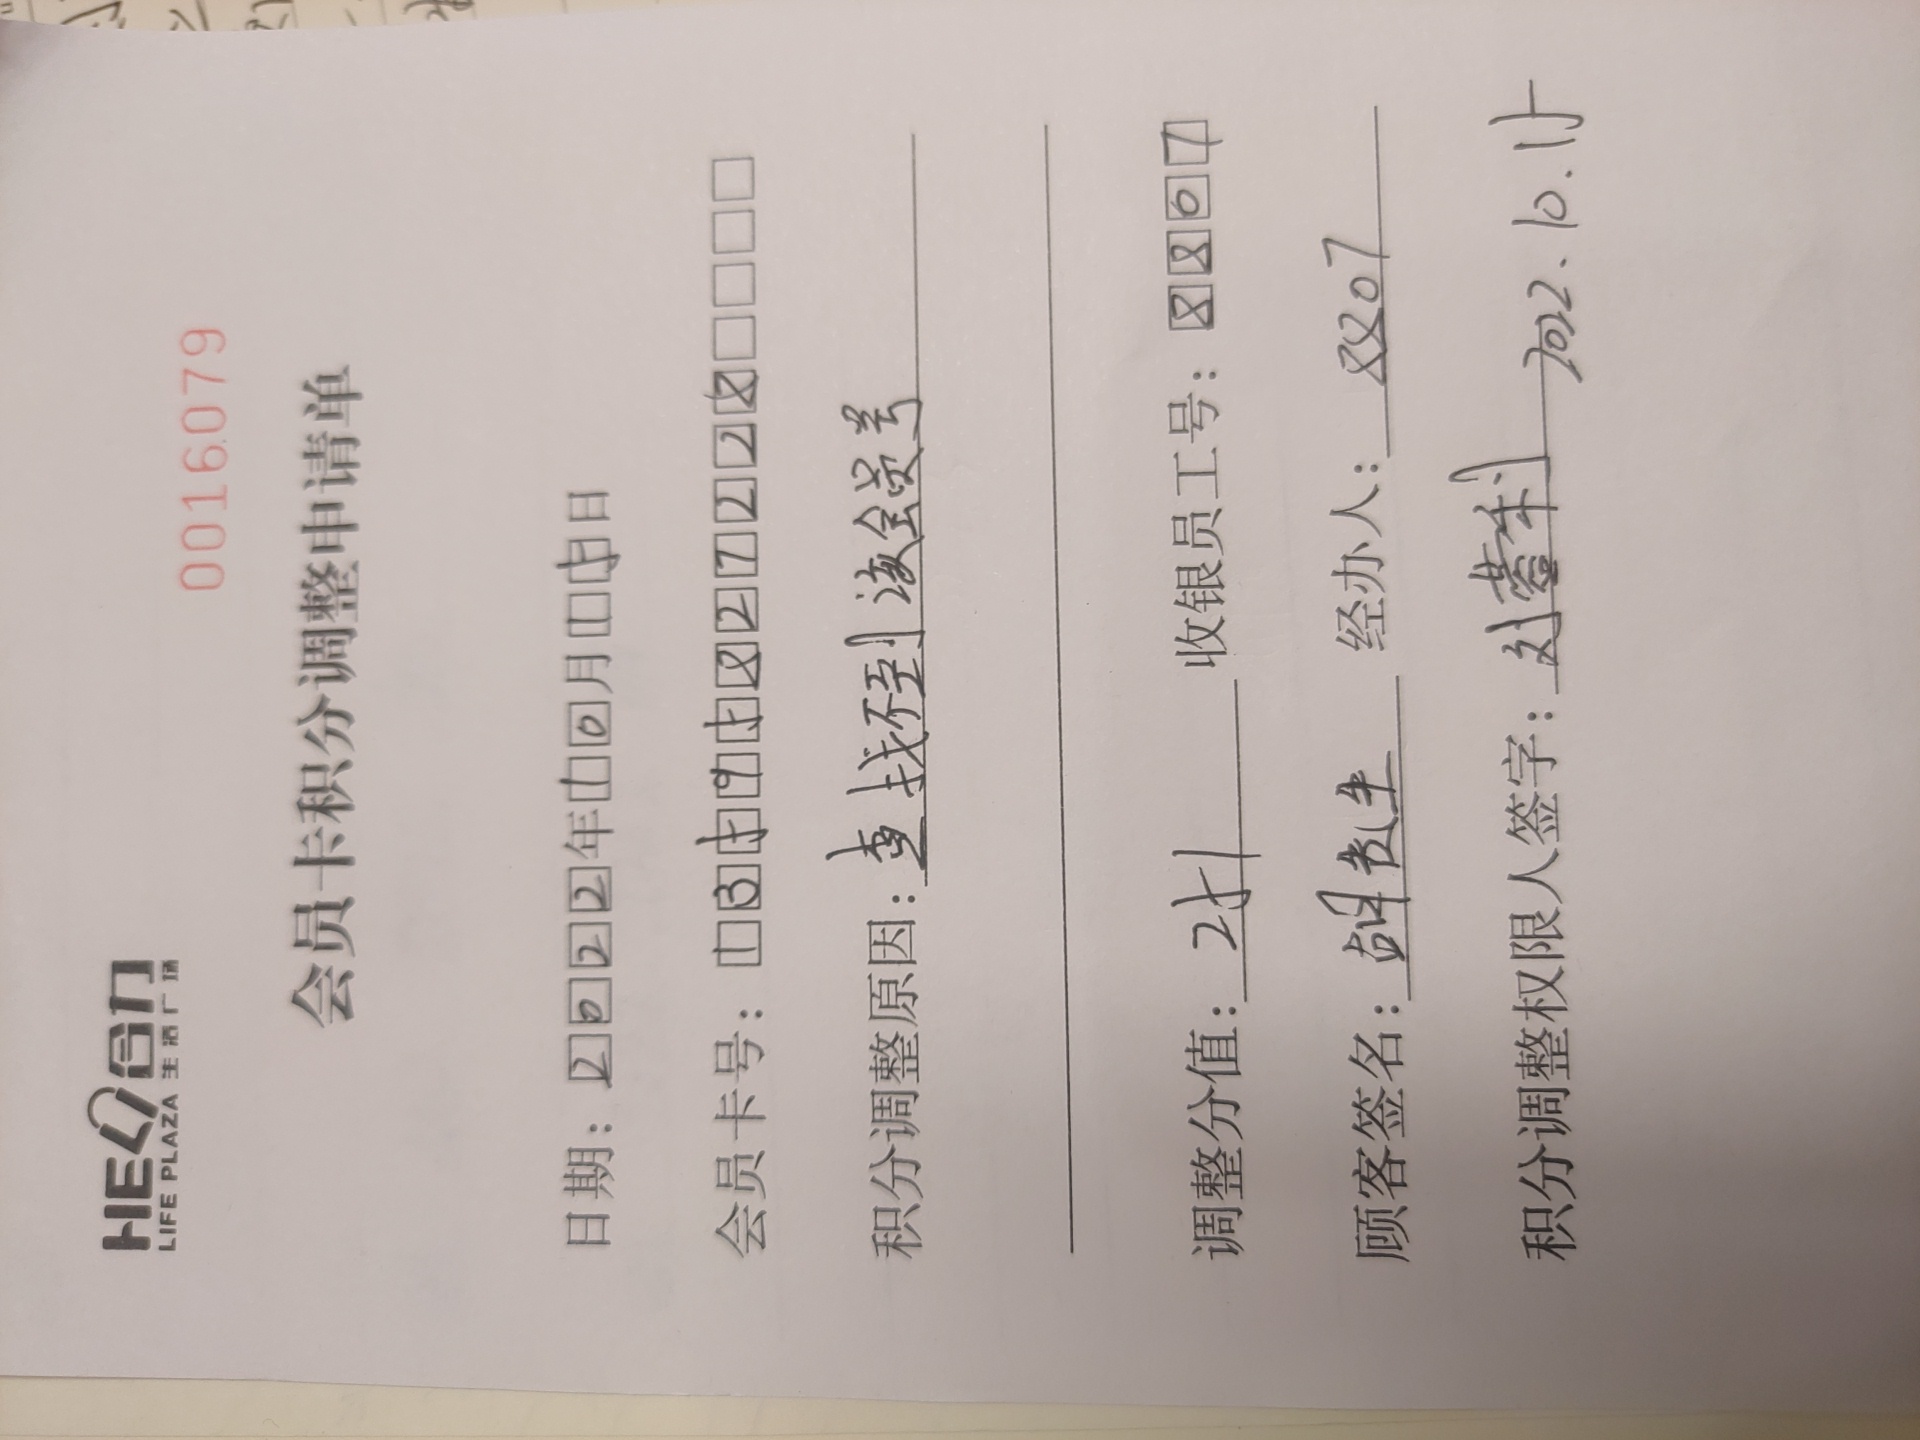 HE合力
LIFE PLAZA 生活广场
0016079
会员卡积分调整申请单
日期：2022年10月15日
会员卡号：13595827228
积分调整原因：查找不到该会员号
调整分值：251 收银员工号：8807
顾客签名：胡 经办人：8807
积分调整权限人签字：刘 2022.10.15